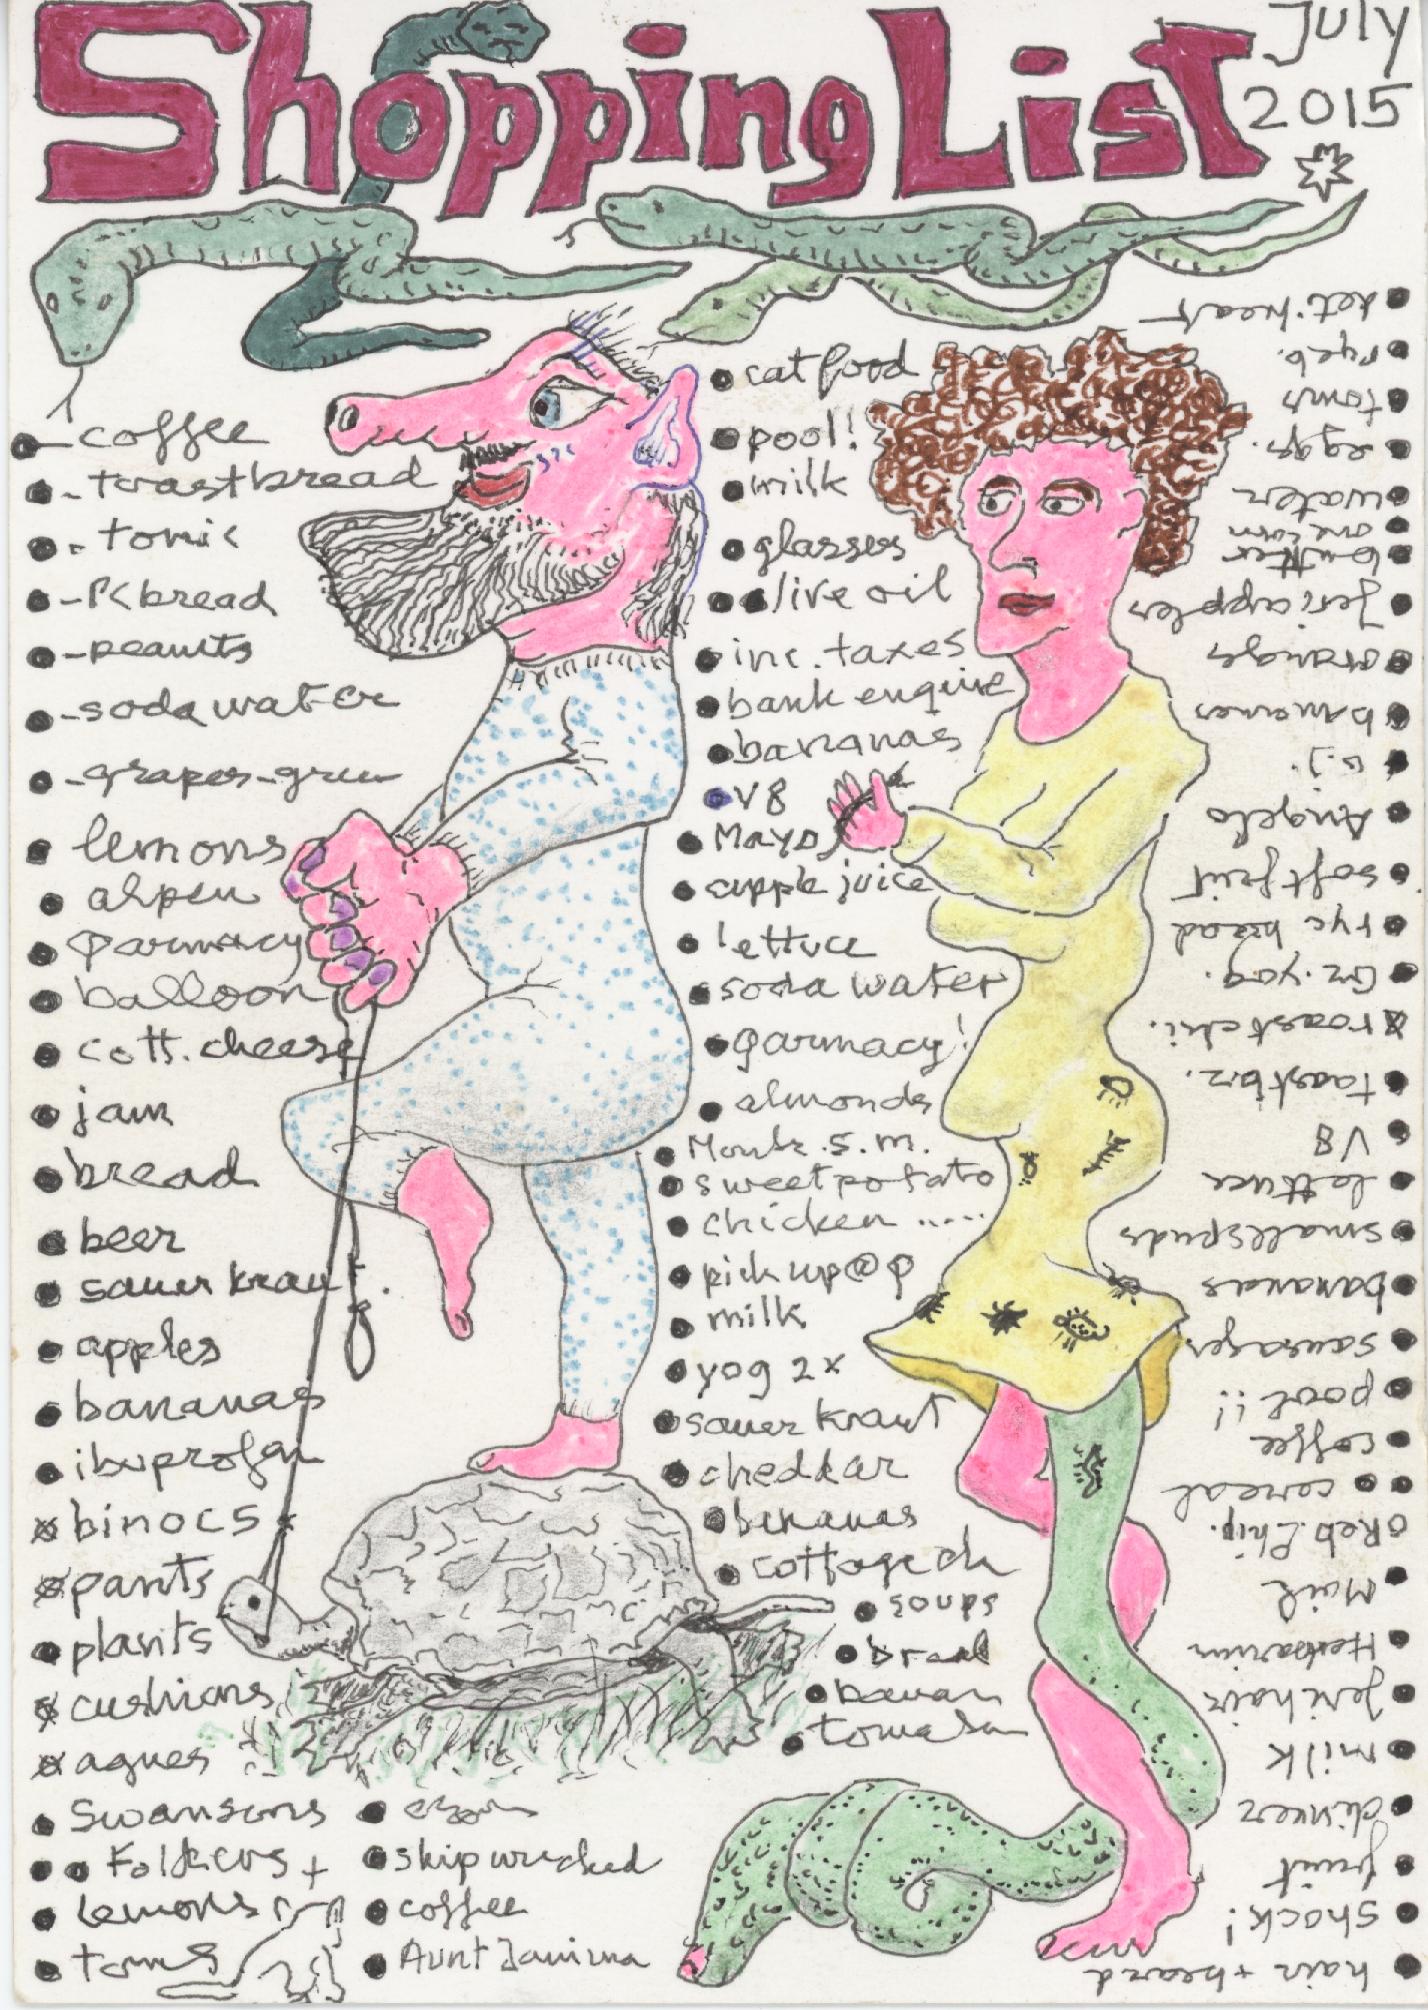 Shopping List
July
2015
coffee
toastbread
tonic
bread
peanuts
soda water
grapes-green
lemons
alpen
parmacy
balloon
cott. cheese
jam
bread
beer
sauerkraut.
apples
bananas
ibuprofen
binocs
pants
plants
cushions
agnes
Swansons
Folkers +
Lemons
toms
skipwrecked
coffee
Aunt Jamima
cat food
pool!
milk
glasses
olive oil
inc. taxes
bank enquire
bananas
V8
Mayo
apple juice
lettuce
soda water
parmacy!
almonds
s.m.
sweet potato
chicken .....
pick up @ p
milk
yog 2x
sauerkraut
chedkar
bananas
cottage ch
spuds
bread
hair + beard
Shock!
fruit
dinner
milk
Jeri hair
Herbarium
Mail
Reb. Chip.
cereal
coffee
pool !!
sausages
bananas
small spuds
lettuce
V8
toastbr.
roast chi.
Gr. yog.
rye bread
soft fruit
Angelo
o.j.
bananas
oranges
Jeri apples
butter
one corn
water
eggs.
toms
rye b.